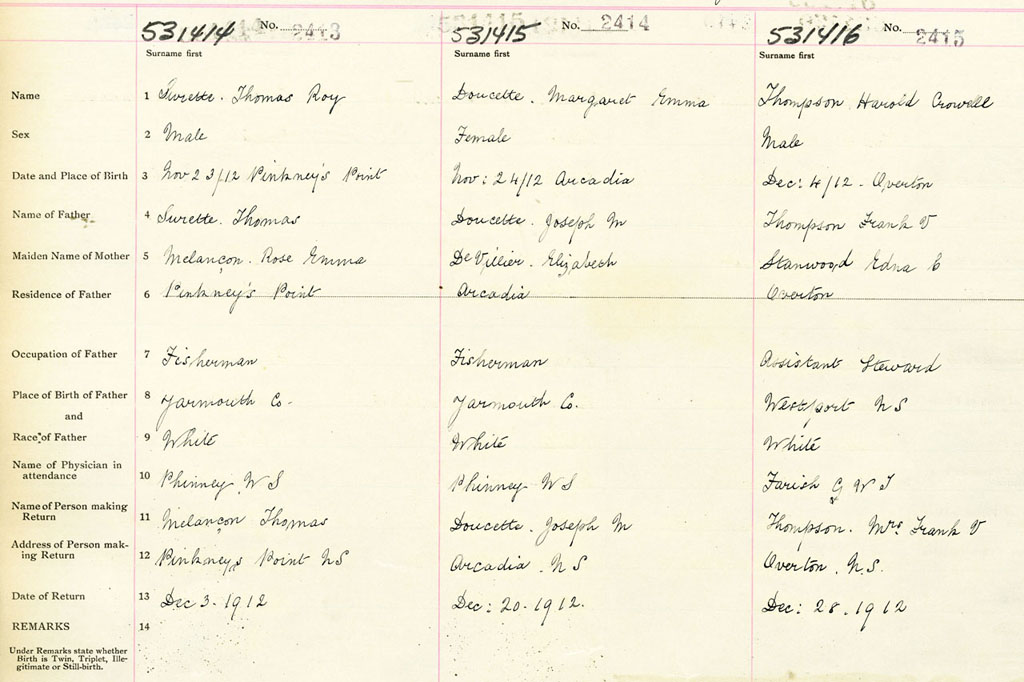 531414 No. 2413 531415 No. 2414 531416 No. 2415
Surname first Surname first Surname first
Name 1 Surette. Thomas Roy Doucette. Margaret Emma Thompson Harold Crowell
Sex 2 Male Female Male
Date and Place of Birth 3 Nov 23/12 Pinkney's Point Nov: 24/12 Arcadia Dec: 4/12 - Overton
Name of Father 4 Surette. Thomas Doucette. Joseph M Thompson Frank V
Maiden Name of Mother 5 Melançon. Rose Emma DeVillier. Elizabeth Stanwood Edna C
Residence of Father 6 Pinkney's Point Arcadia Overton
Occupation of Father 7 Fisherman Fisherman Assistant Steward
Place of Birth of Father 8 Yarmouth Co. Yarmouth Co. Westport NS
and
Race of Father 9 White White White
Name of Physician in
attendance 10 Phinney W S Phinney W S Farish G W T
Name of Person making
Return 11 Melançon Thomas Doucette. Joseph M Thompson. Mrs Frank V
Address of Person mak-
ing Return 12 Pinkneys Point NS Arcadia. NS Overton. N.S.
Date of Return 13 Dec 3. 1912 Dec: 20. 1912. Dec: 28. 1912
REMARKS 14
Under Remarks state whether
Birth is Twin, Triplet, Ille-
gitimate or Still-birth.